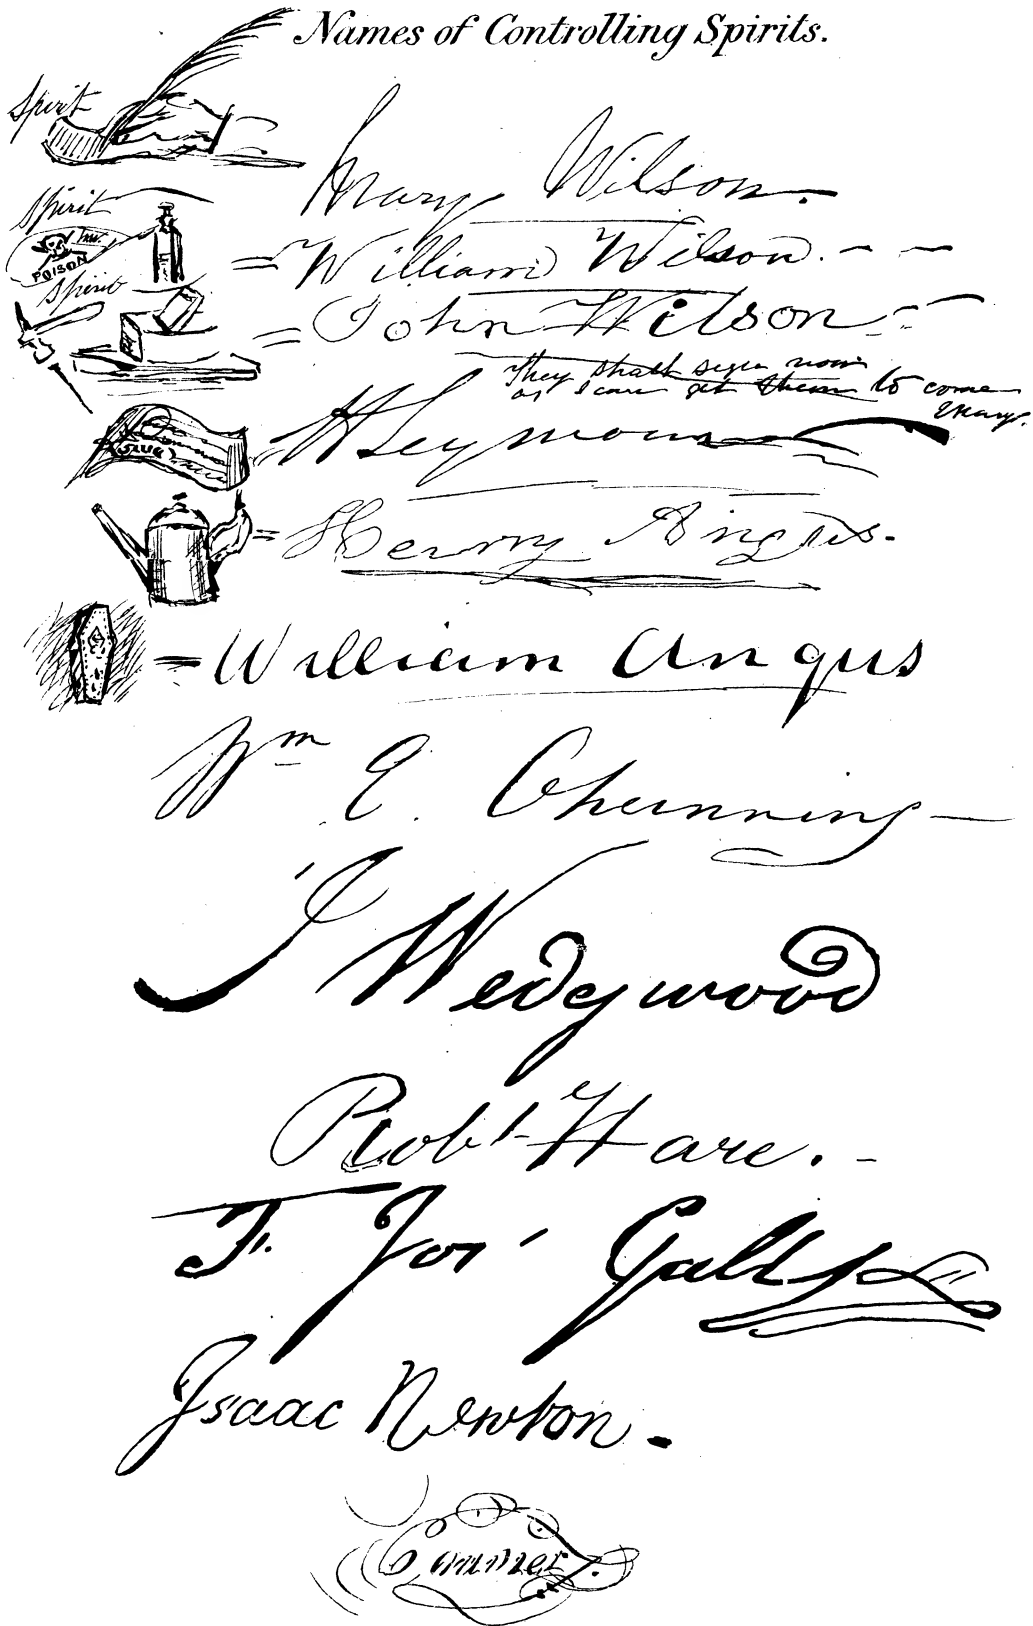 Names of Controlling Spirits.
Spirit
Mary Wilson.
Spirit
POISON
= William Wilson. - -
Spirit
= John Wilson - -
They shall sign now
as I can get them to come
Mary.
= H Seymour
= Henry Angus.
= William Angus
Wm E. Channing —
J Wedgwood
Robt Hare. -
F. Jos' Gall
Isaac Newton.